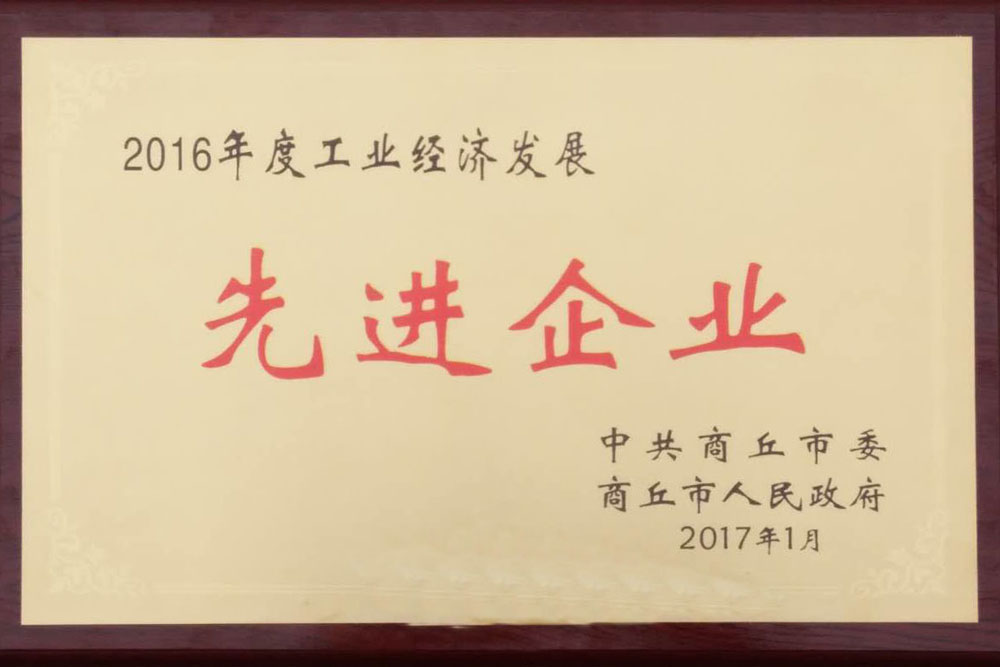 2016年度工业经济发展
先进企业
中共商丘市委
商丘市人民政府
2017年1月